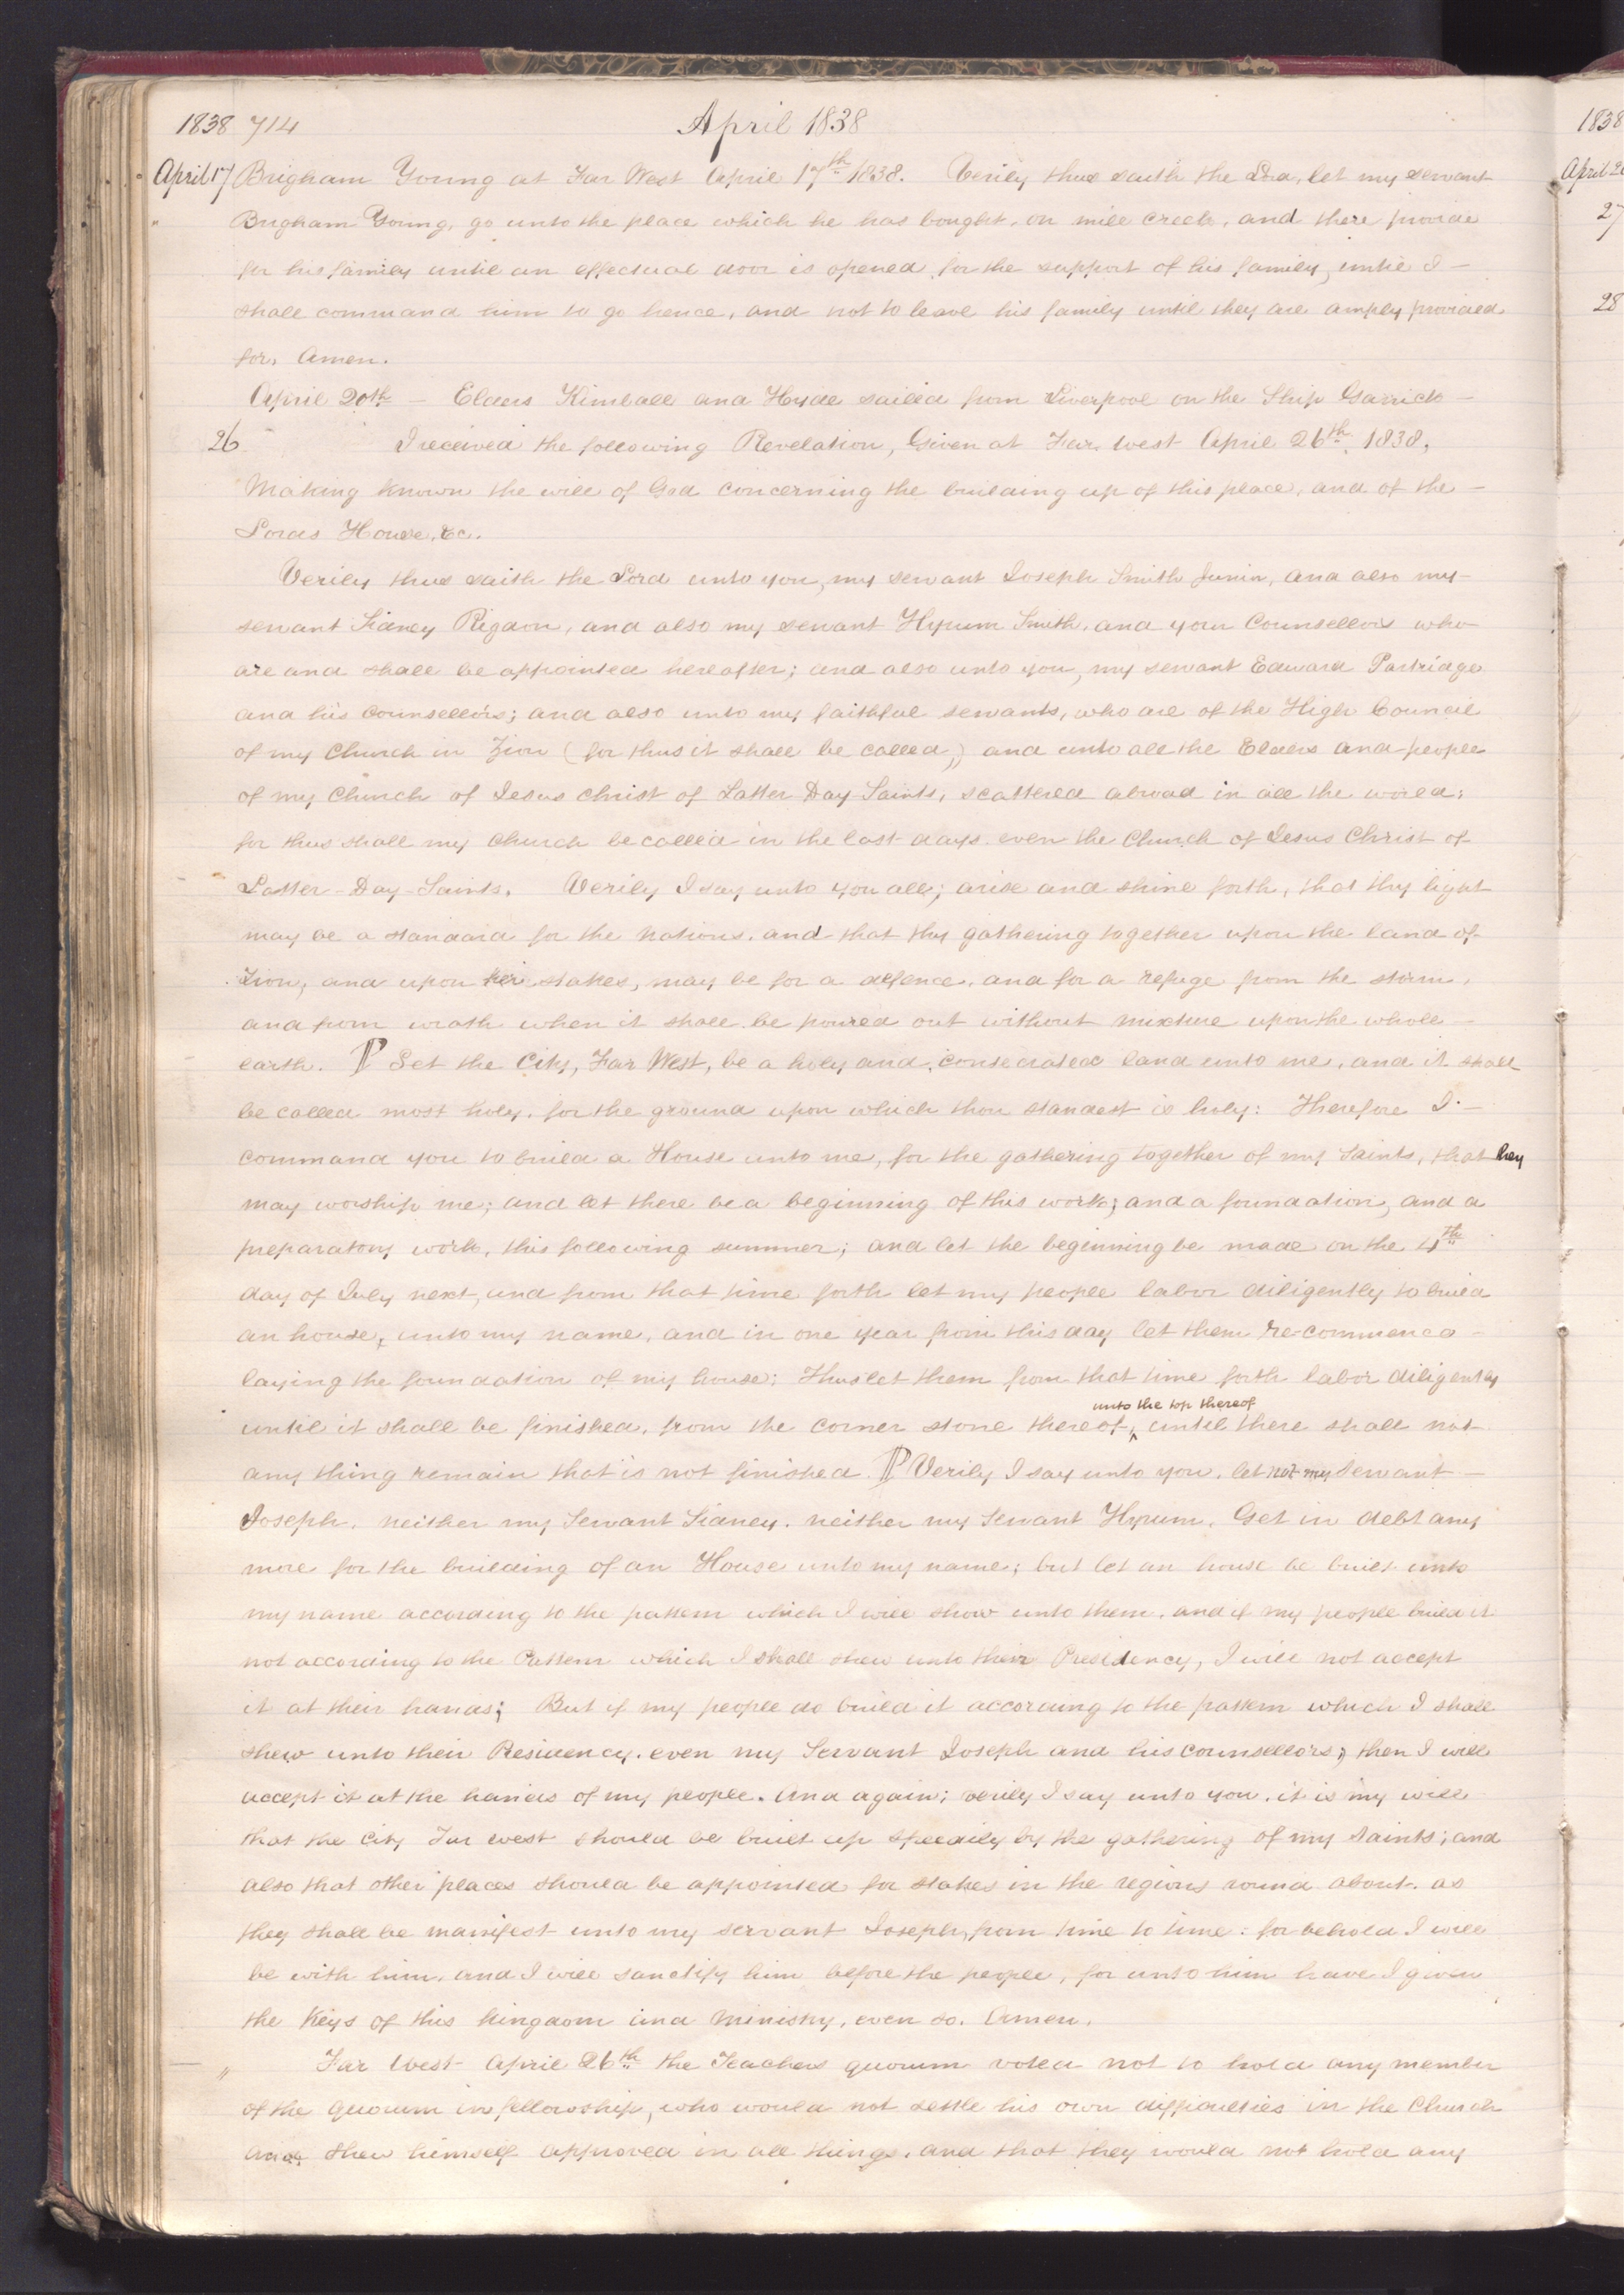 1838 714 April 1838
April 17 Brigham Young at Far West April 17th 1838. Verily thus saith the Lord, let my servant
" Brigham Young, go unto the place which he has bought, on mill creek, and there provide
for his family until an effectual door is opened for the support of his family, until I
shall command him to go hence, and not to leave his family until they are amply provided
for. Amen.
April 20th — Elders Kimball and Hyde sailed from Liverpool on the Ship Garrick —
26 I received the following Revelation, Given at Far west April 26th. 1838,
Making known the will of God concerning the building up of this place, and of the —
Lords House, &c.
Verily thus saith the Lord unto you, my servant Joseph Smith Junin, and also my
servant Sidney Rigdon, and also my servant Hyrum Smith, and your Counsellors who
are and shall be appointed hereafter; and also unto you, my servant Edward Partridge
and his Counsellors; and also unto my faithful servants, who are of the High Council
of my Church in Zion (for thus it shall be called,) and unto all the Elders and people
of my Church of Jesus Christ of Latter Day Saints, scattered abroad in all the world;
for thus shall my Church be called in the last days even the Church of Jesus Christ of
Latter-Day-Saints. Verily I say unto you all; arise and shine forth, that thy light
may be a standard for the nations, and that thy gathering together upon the land of
Zion, and upon her stakes, may be for a defence, and for a refuge from the storm,
and from wrath when it shall be poured out without mixture upon the whole —
earth. ¶ Let the City, Far West, be a holy and consecrated land unto me, and it shall
be called most holy, for the ground upon which thou standest is holy: Therefore I —
command you to build a House unto me, for the gathering together of my Saints, that hey
may worship me; and let there be a beginning of this work; and a foundation, and a
preparatory work, this following summer; and let the beginning be made on the 4th
day of July next, and from that time forth let my people labor diligently to build
an house, unto my name, and in one year from this day let them re-commence
laying the foundation of my house; Thus let them from that time forth labor diligently
unto the top thereof
until it shall be finished, from the corner stone thereof, ^ until there shall not
any thing remain that is not finished. ¶ Verily I say unto you, let not my servant —
Joseph, neither my Servant Sidney, neither my Servant Hyrum, Get in debt any
more for the building of an House unto my name; but let an house be built unto
my name according to the pattern which I will show unto them, and if my people build it
not according to the Pattern which I shall shew unto their Presidency, I will not accept
it at their hands; But if my people do build it according to the pattern which I shall
shew unto their Presidency, even my Servant Joseph and his counsellors; then I will
accept it at the hands of my people. And again; verily I say unto you, it is my will
that the City Far west should be built up speedily by the gathering of my saints; and
also that other places should be appointed for stakes in the regions round about, as
they shall be manifest unto my servant Joseph, from time to time: for behold I will
be with him, and I will sanctify him before the people, for unto him have I given
the Keys of this kingdom and ministry, even so. Amen.
" Far West April 26th the Teachers quorum voted not to hold any member
of the quorum in fellowship, who would not settle his own difficulties in the Church
and shew himself approved in all things, and that they would not hold any
1838
April 26
27
28